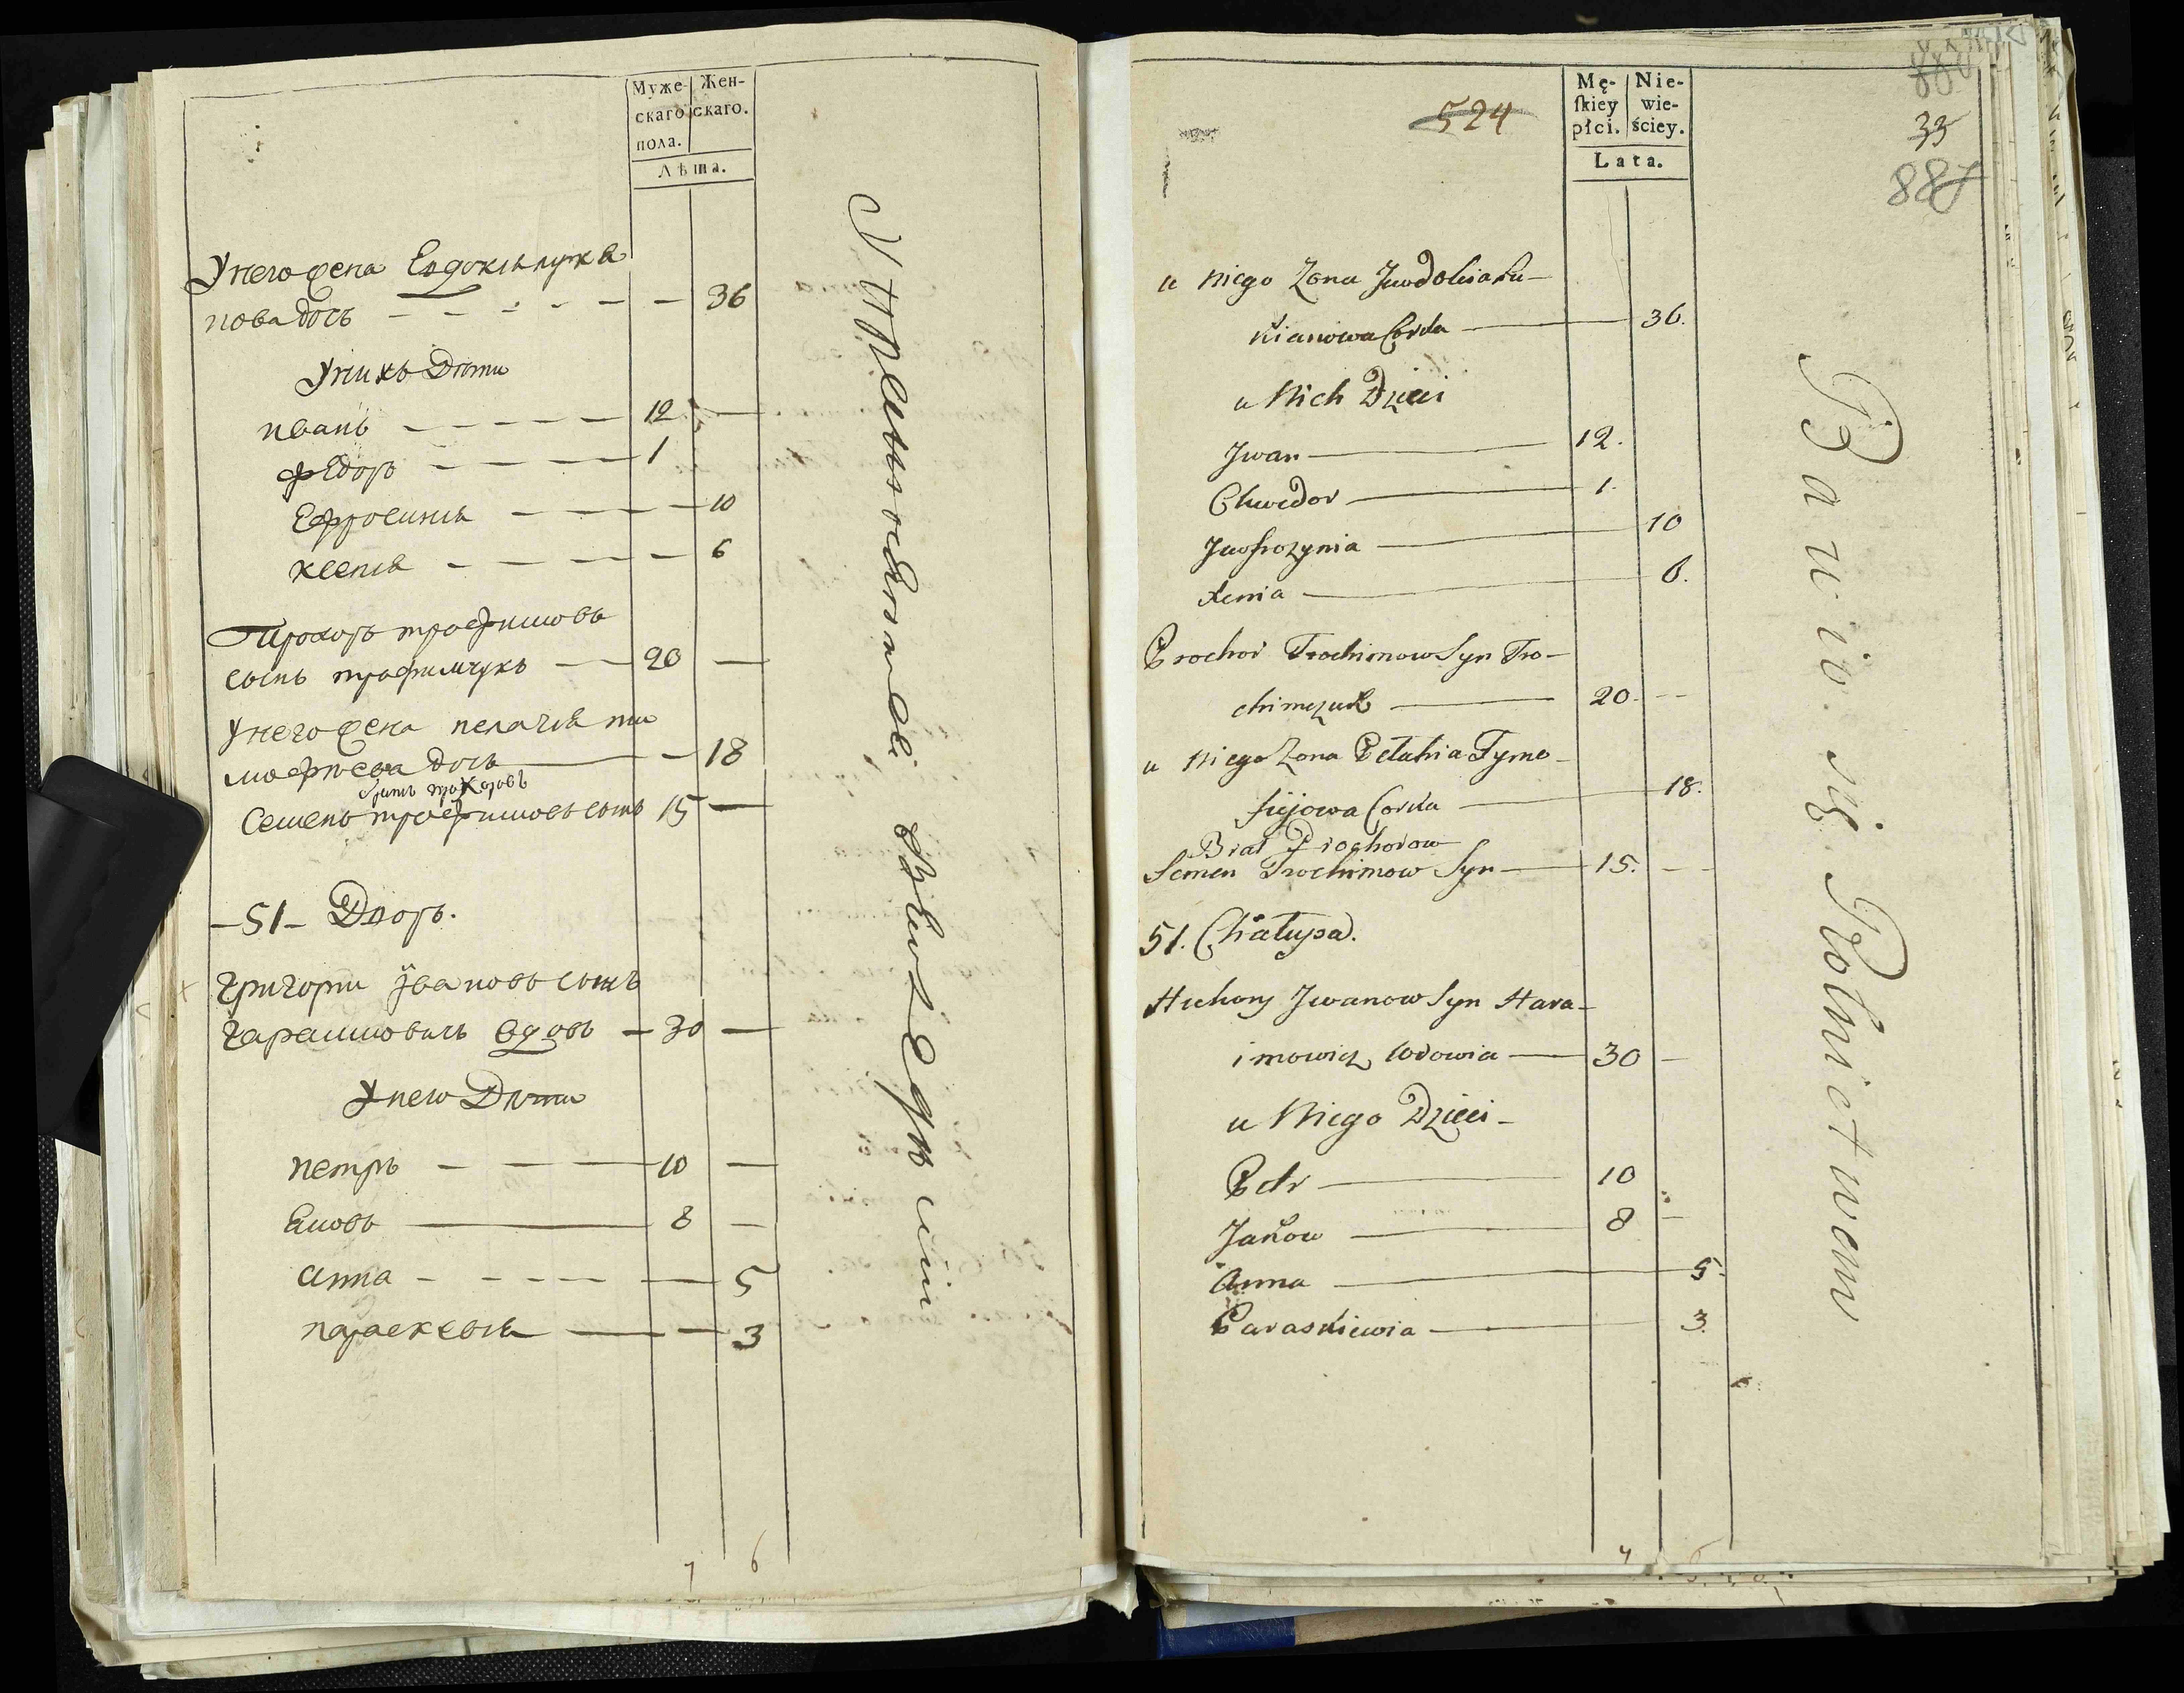 Муже- Жен-
скаго скаго.
пола.
Лѣта.
У него жена Евдокия лукя
нова дочь — 36
У них Дѣти
иванъ — 12 —
Федоръ — 1
Ефросиния — 10
Ксения — 6
Прохоръ трофимовъ
сынъ трофимчукъ — 20 —
У него жена пелагия ти
мофѣева дочь — 18
братъ прохоровъ
Семенъ трофимовъ сынъ 15 —
-51- Дворъ.
Григори Ивановъ сынъ
Гараимовичь вдовъ — 30 —
У него Дѣти
петръ — 10 —
Яковъ — 8 —
анна — 5
параскевия — 3
7 6
524
Mę- Nie-
ſkiey wie-
płci. ściey.
Lata.
33
887
u Niego Zona Jewdokia Łu-
kianowa Corka — 36.
u Nich Dzieci
Jwan — 12.
Chwedor — 1.
Jewfrozynia — 10
Xenia — 6.
Prochor Trochimow Syn Tro-
chimczuk — 20. --
u Niego Zona Pelahia Tymo-
fiejowa Corka — 18.
Brat Prochorow
Semen Trochimow Syn — 15. --
51. Chałupa.
Hrehory Jwanow Syn Hara-
imowicz Wdowiec — 30 —
u Niego Dzieci -
Petr — 10
Jakow — 8 —
Anna — 5.
Paraskiewia — 3.
7 6
Bawio. się. Rolnictwem